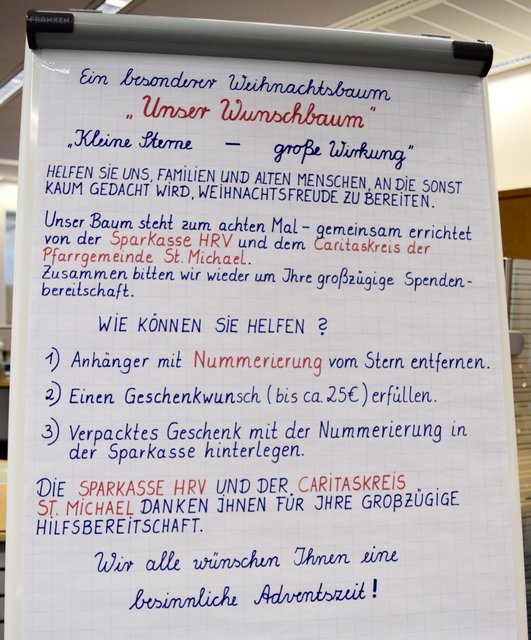 FRANKEN
Ein besonderer Weihnachtsbaum
„Unser Wunschbaum"
„Kleine Sterne – große Wirkung"
HELFEN SIE UNS, FAMILIEN UND ALTEN MENSCHEN, AN DIE SONST
KAUM GEDACHT WIRD, WEIHNACHTSFREUDE ZU BEREITEN.
Unser Baum steht zum achten Mal – gemeinsam errichtet
von der Sparkasse HRV und dem Caritaskreis der
Pfarrgemeinde St. Michael.
Zusammen bitten wir wieder um Ihre großzügige Spenden-
bereitschaft.
WIE KÖNNEN SIE HELFEN ?
1) Anhänger mit Nummerierung vom Stern entfernen.
2) Einen Geschenkwunsch (bis ca. 25€) erfüllen.
3) Verpacktes Geschenk mit der Nummerierung in
der Sparkasse hinterlegen.
DIE SPARKASSE HRV UND DER CARITASKREIS
ST. MICHAEL DANKEN IHNEN FÜR IHRE GROßZÜGIGE
HILFSBEREITSCHAFT.
Wir alle wünschen Ihnen eine
besinnliche Adventszeit!